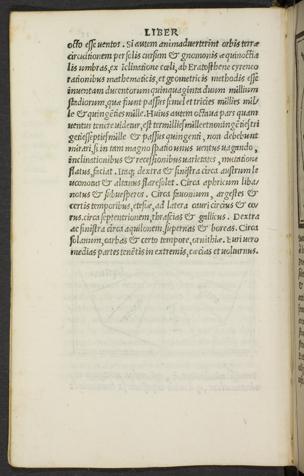 LIBER
octo esse ventos. Si autem animaduerterint orbis terræ
circuitionem per solis cursum & gnomonis æquinoctia
lis umbras, ex iclinatione cœli, ab Eratosthene cyreneo
rationibus mathematicis, et geometricis methodis esse
inventam ducentorum quinquaginta duum millium
stadiorum, quæ fiunt passus semel et tricies millies mil
le & quingẽties mille. Huius autem octaua pars quam
ventus tenere videtur, est termillies mille et noningẽties tri
geties septies mille & passus quingenti, non debebunt
mirari, si in tam magno spatio unus ventus vagando,
inclinationibus & recessionibus varietates, mutatione
flatus, faciat. Itaq; dextra & sinistra circa austrum le
uconotus & altanus flare solet. Circa aphricum libo
notus & subuesperus. Circa fauonium, argestes &
certis temporibus, etesiæ, ad latera cauri circius & co
rus. circa septentrionem, thrascias & gallicus. Dextra
ac sinistra circa aquilonem, supernas & boreas. Circa
solanum, carbas & certo tempore, ornithiæ. Euri vero
medias partes tenẽtis in extremis, cæcias et volturnus.